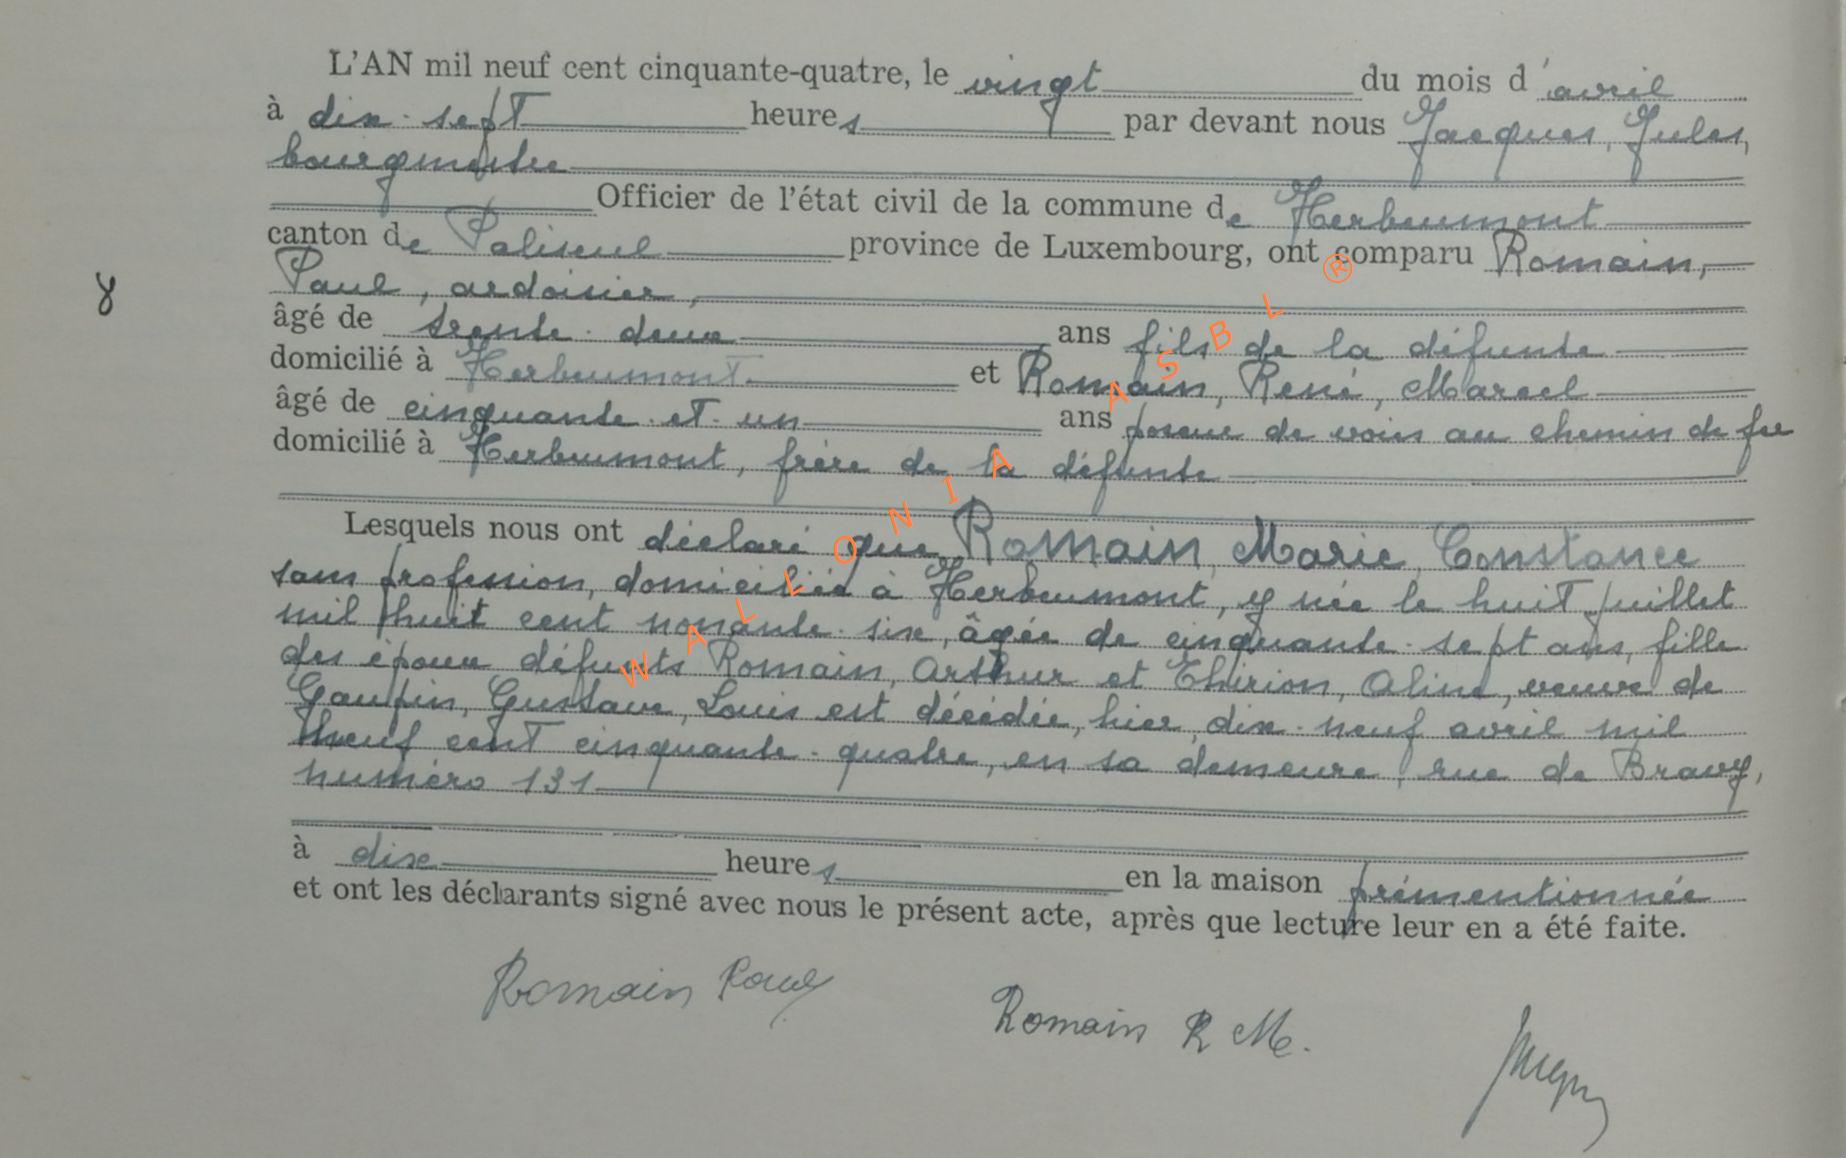 L'AN mil neuf cent cinquante-quatre, le vingt du mois d'avril
à dix-sept heures par devant nous Jacques, Jules,
bourgmestre
Officier de l'état civil de la commune de Herbeumont
canton de Paliseul province de Luxembourg, ont comparu Romain,
Paul, ardoisier,
8
âgé de trente-deux ans fils de la défunte
domicilié à Herbeumont et Romain, René, Marcel
âgé de cinquante-et-un ans poseur de voies au chemin de fer
domicilié à Herbeumont, frère de la défunte
Lesquels nous ont déclaré que Romain, Marie, Constance
sans profession, domiciliée à Herbeumont, y née le huit juillet
mil huit cent nonante-six, âgée de cinquante-sept ans, fille
des époux défunts Romain, Arthur et Thirion, Aline, veuve de
Gaupin, Gustave, Louis est décédée, hier, dix-neuf avril mil
neuf cent cinquante-quatre, en sa demeure, rue de Bravy,
numéro 131
à dix heures en la maison prémentionnée
et ont les déclarants signé avec nous le présent acte, après que lecture leur en a été faite.
Romain Paul
Romain R M.
WALLONIA ASBL ®